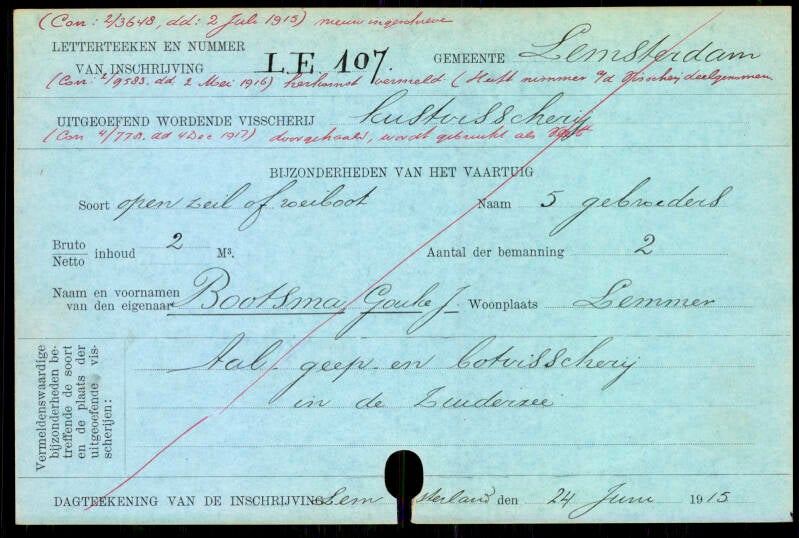 (Con: 2/3648, dd: 2 Juli 1915) nieuw ingeschreve
LETTERTEEKEN EN NUMMER
VAN INSCHRIJVING L.E. 107. GEMEENTE Lemsterdam
(Con: 2/9583. dd 2 Mei 1916) herkomst vermeld (Heeft nimmer a/d Visscherij deelgenomen
UITGEOEFEND WORDENDE VISSCHERIJ kustvisscherij
(Con 4/778. dd 4 Dec 1917) doorgehaald, wordt gebruikt als
BIJZONDERHEDEN VAN HET VAARTUIG
Soort open zeil of roeiboot Naam 5 gebroeders
Bruto
Netto inhoud 2 M³. Aantal der bemanning 2
Naam en voornamen
van den eigenaar Bootsma, Gauke J. Woonplaats Lemmer
Vermeldenswaardige
bijzonderheden be-
treffende de soort
en de plaats der
uitgeoefende vis-
scherijen:
Aal- geep- en botvisscherij
in de Zuiderzee
DAGTEEKENING VAN DE INSCHRIJVING Lemsterland den 24 Juni 1915